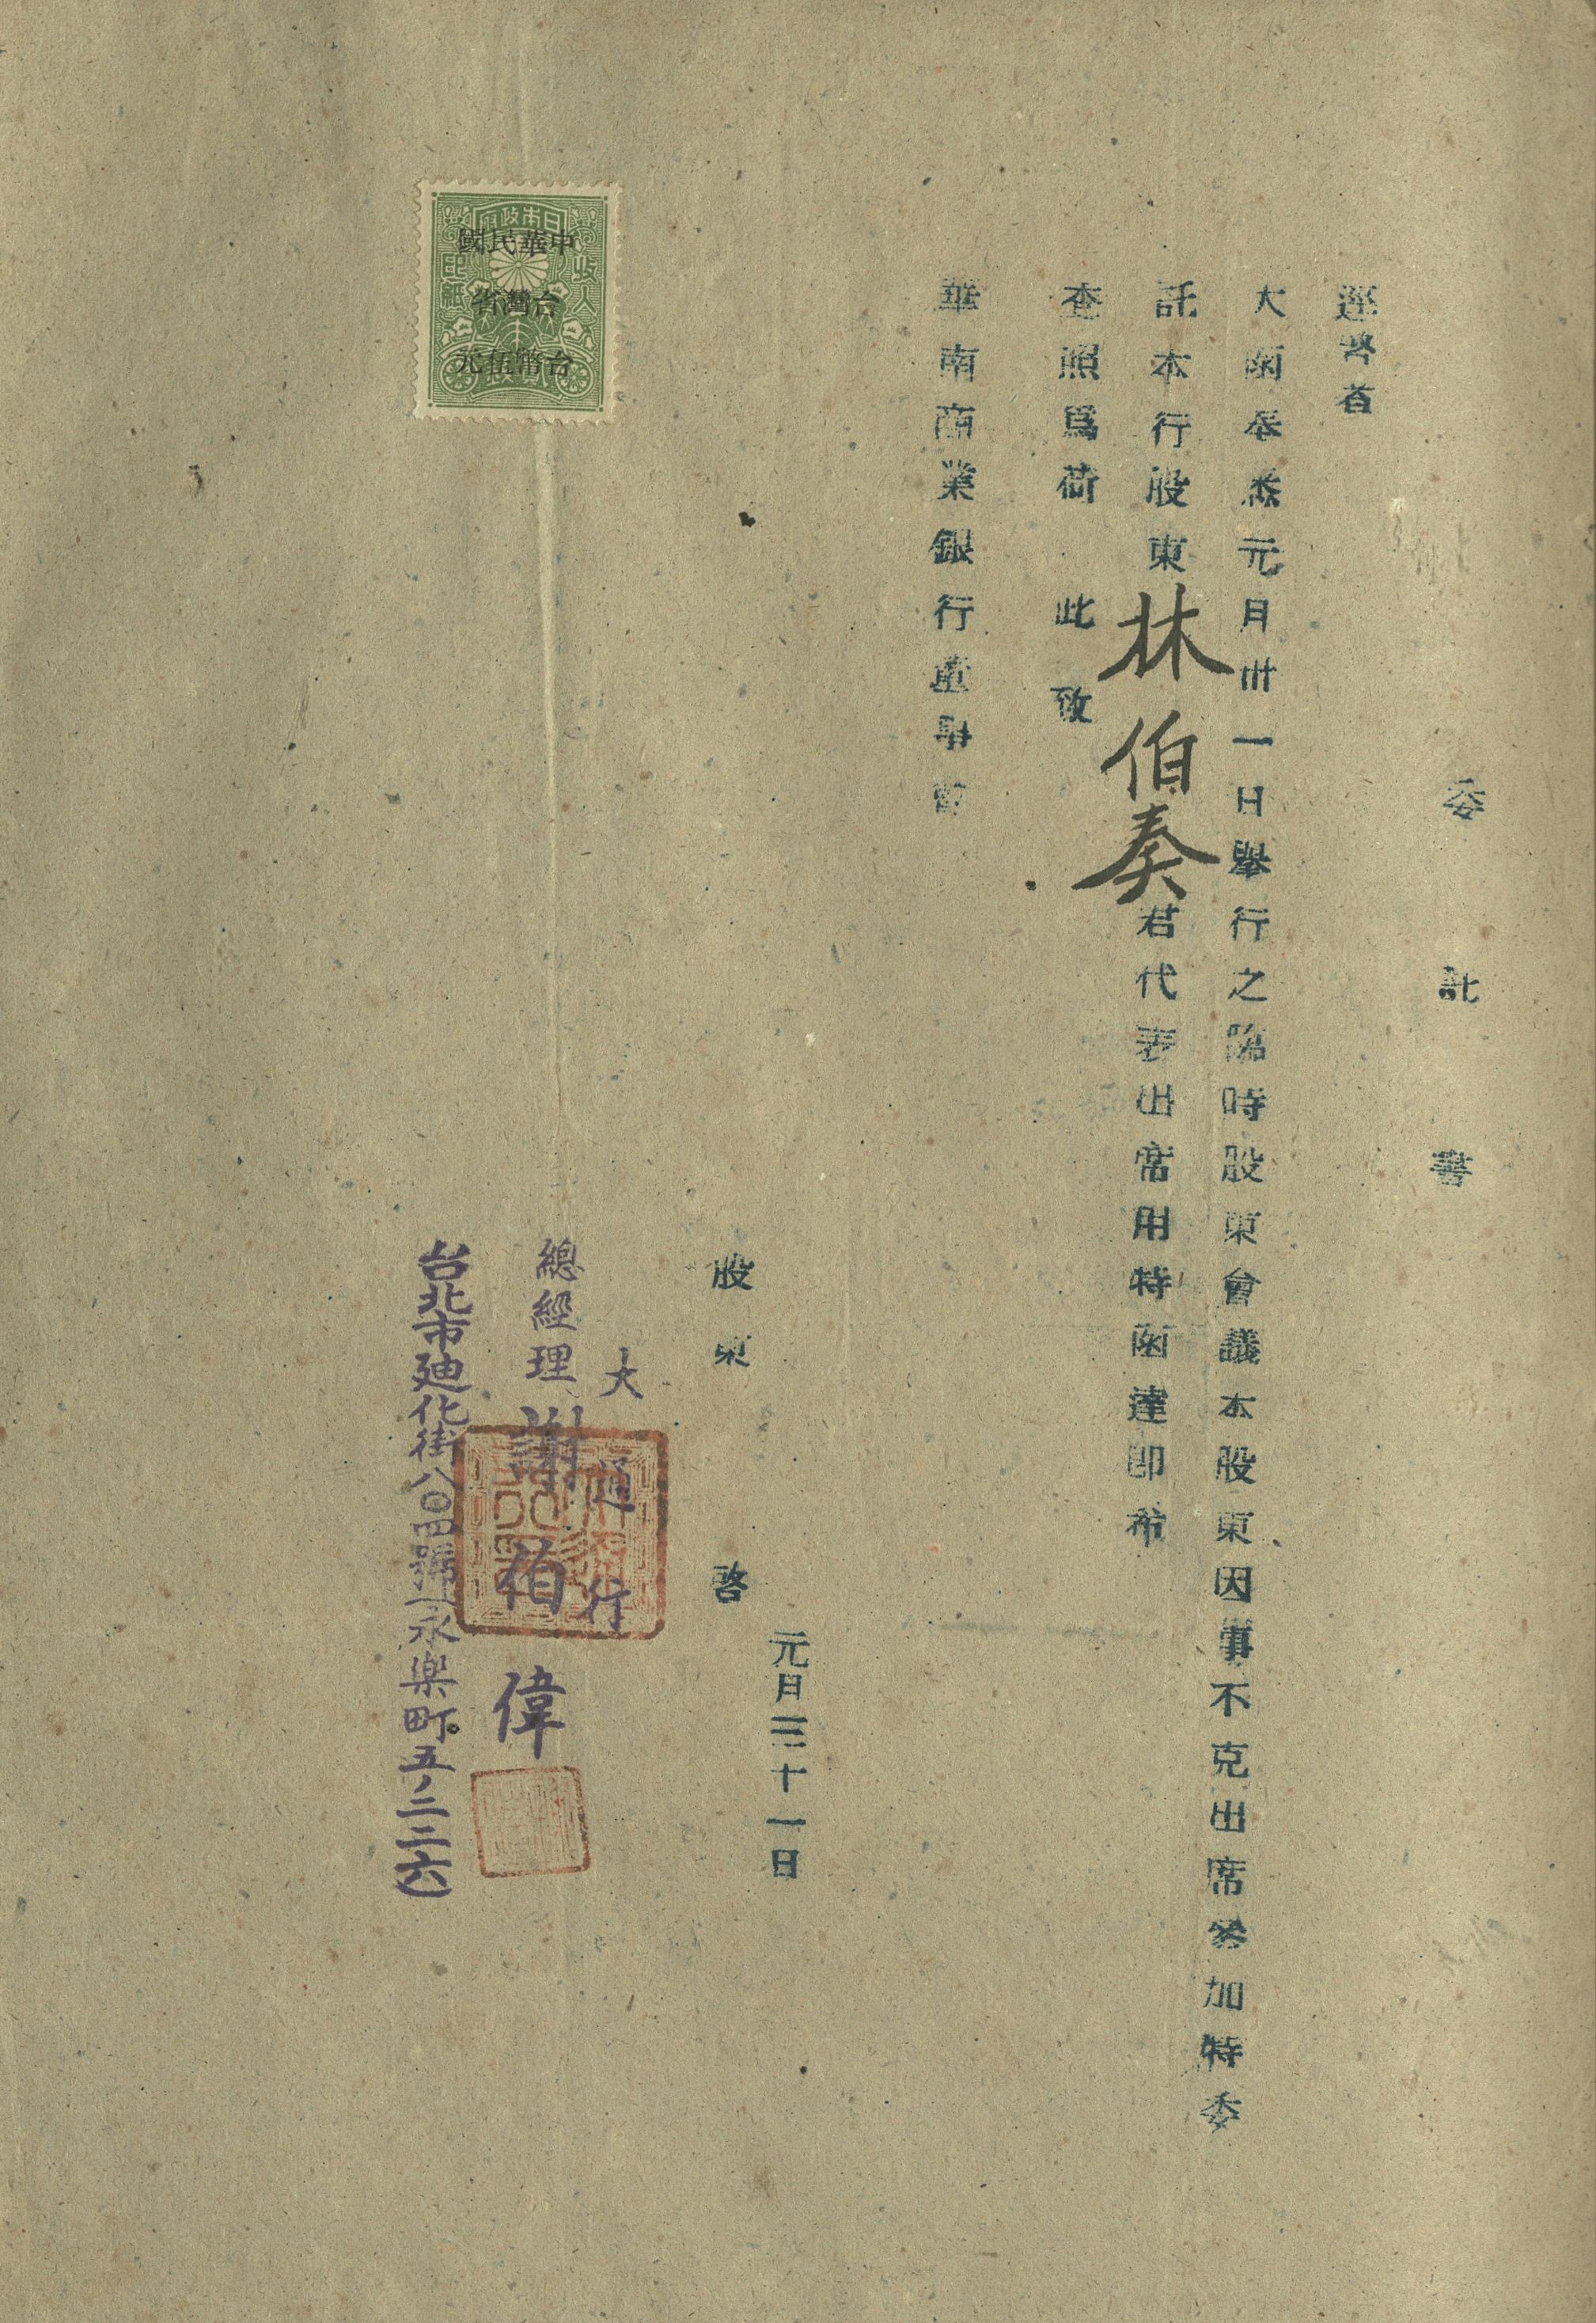 委託書
逕啓者
大函奉悉元月卅一日舉行之臨時股東會議本股東因事不克出席參加特委
託本行股東林伯奏君代表出席用特函達即希
查照爲荷 此致
華南商業銀行董事會
元月三十一日
股東 啓
大通行
總經理 謝伯偉
台北市廸化街八〇四號(永樂町五ノ二二六)
日本政府
收入印紙
中華民國
台灣省
台幣伍元